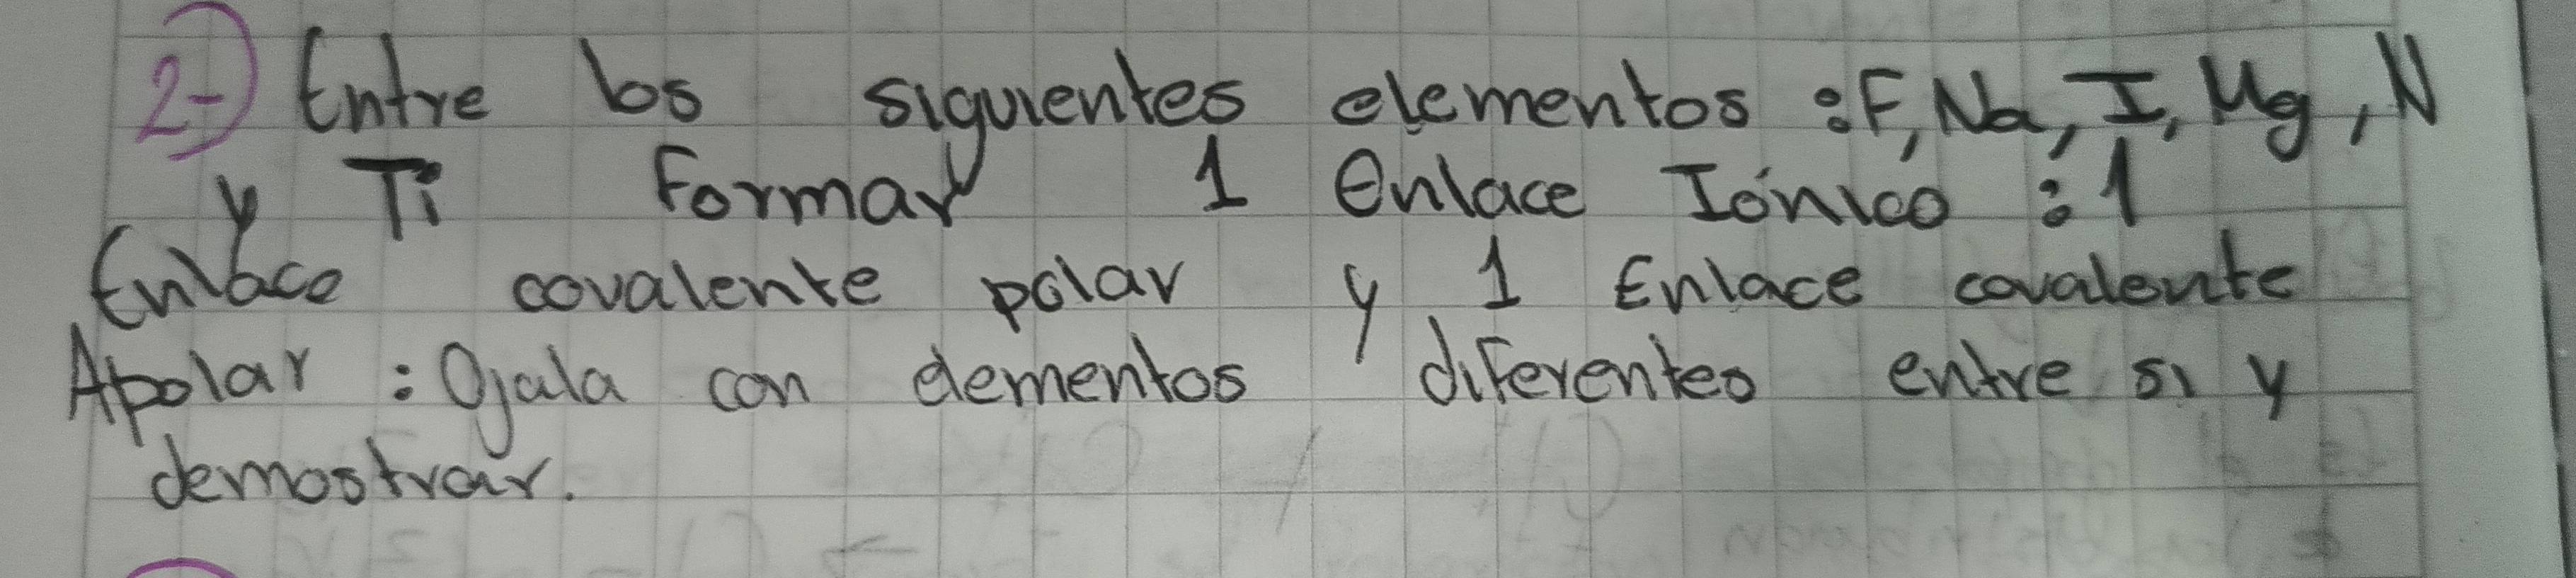 2-) Entre los siguientes elementos : F, Na, I, Mg, N
y Ti formar 1 Enlace Iónico : 1
Enlace covalente polar y 1 Enlace covalente
Apolar : Ojala con elementos diferentes entre si y
demostrar.